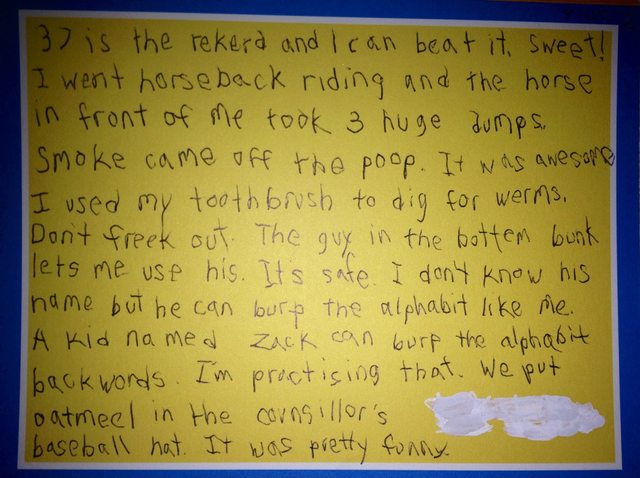 37 is the rekerd and I can beat it. Sweet!
I went horseback riding and the horse
in front of me took 3 huge dumps.
Smoke came off the poop. It was awesome
I used my toothbrush to dig for werms.
Don't freek out. The guy in the bottem bunk
lets me use his. It's safe. I don't know his
name but he can burp the alphabit like me.
A kid named Zack can burp the alphabit
backwords. I'm practising that. We put
oatmeel in the counsillor's
baseball hat. It was pretty funny.